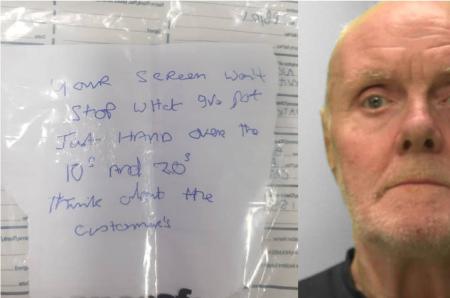 YOUR SCREEN Won't
STOP what ive got
Just HAND over the
10s and 20s
think about the
customer's